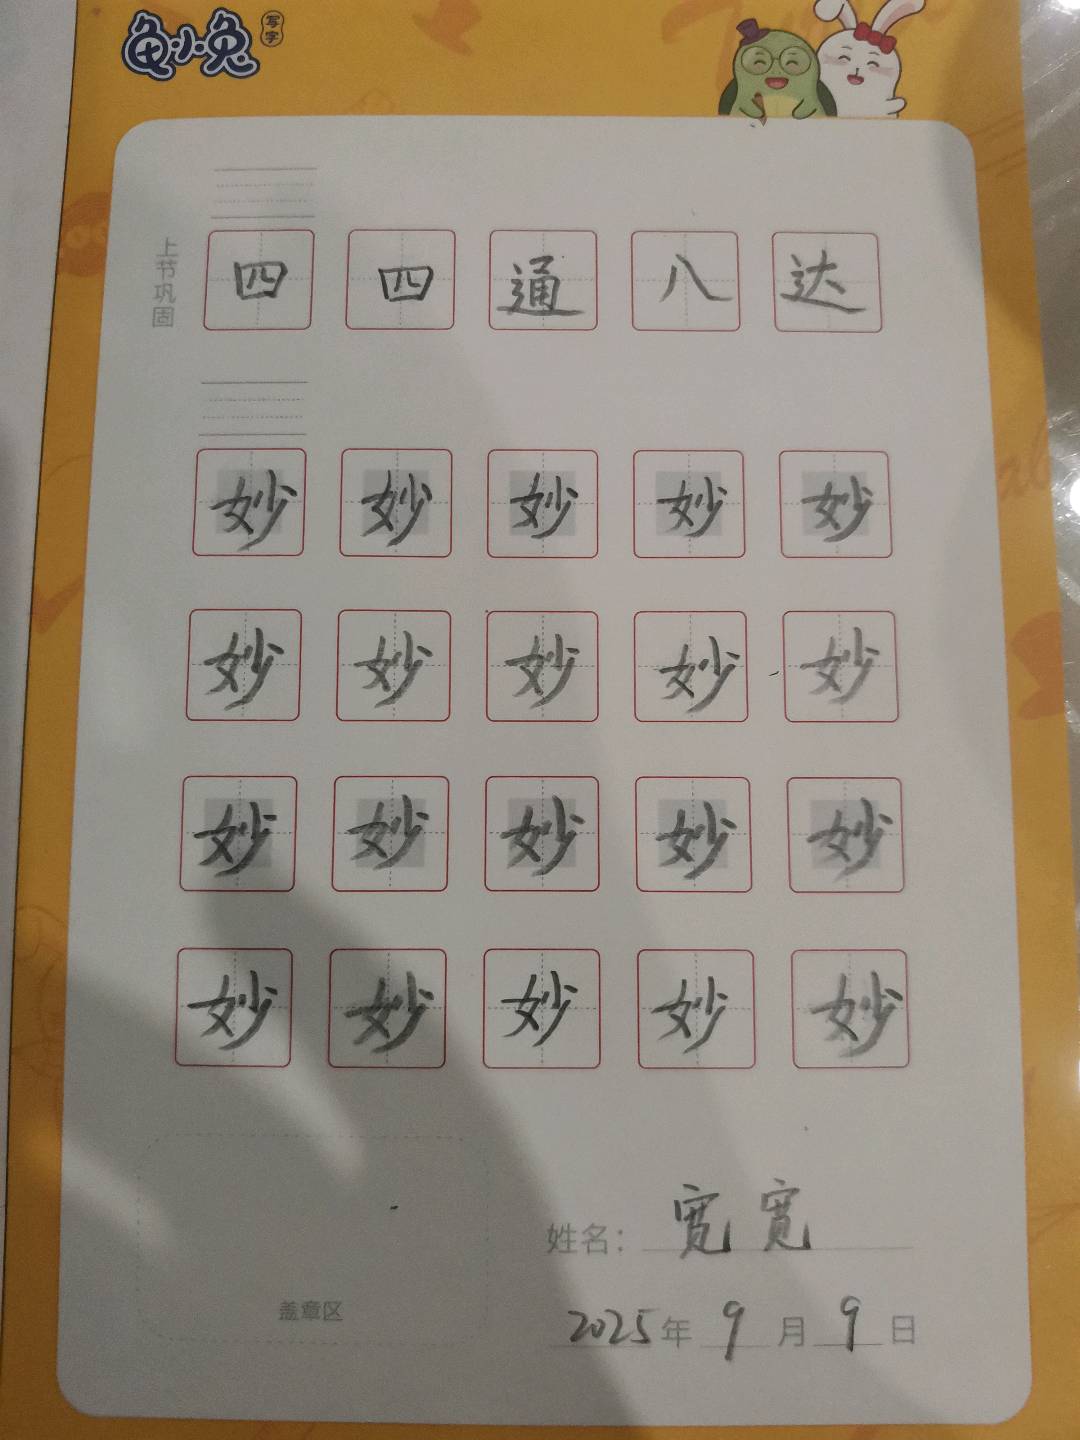 龟小兔 写字
上节巩固
四 四 通 八 达
妙 妙 妙 妙 妙
妙 妙 妙 妙 妙
妙 妙 妙 妙 妙
妙 妙 妙 妙 妙
姓名: 宽宽
盖章区
2025年9月9日